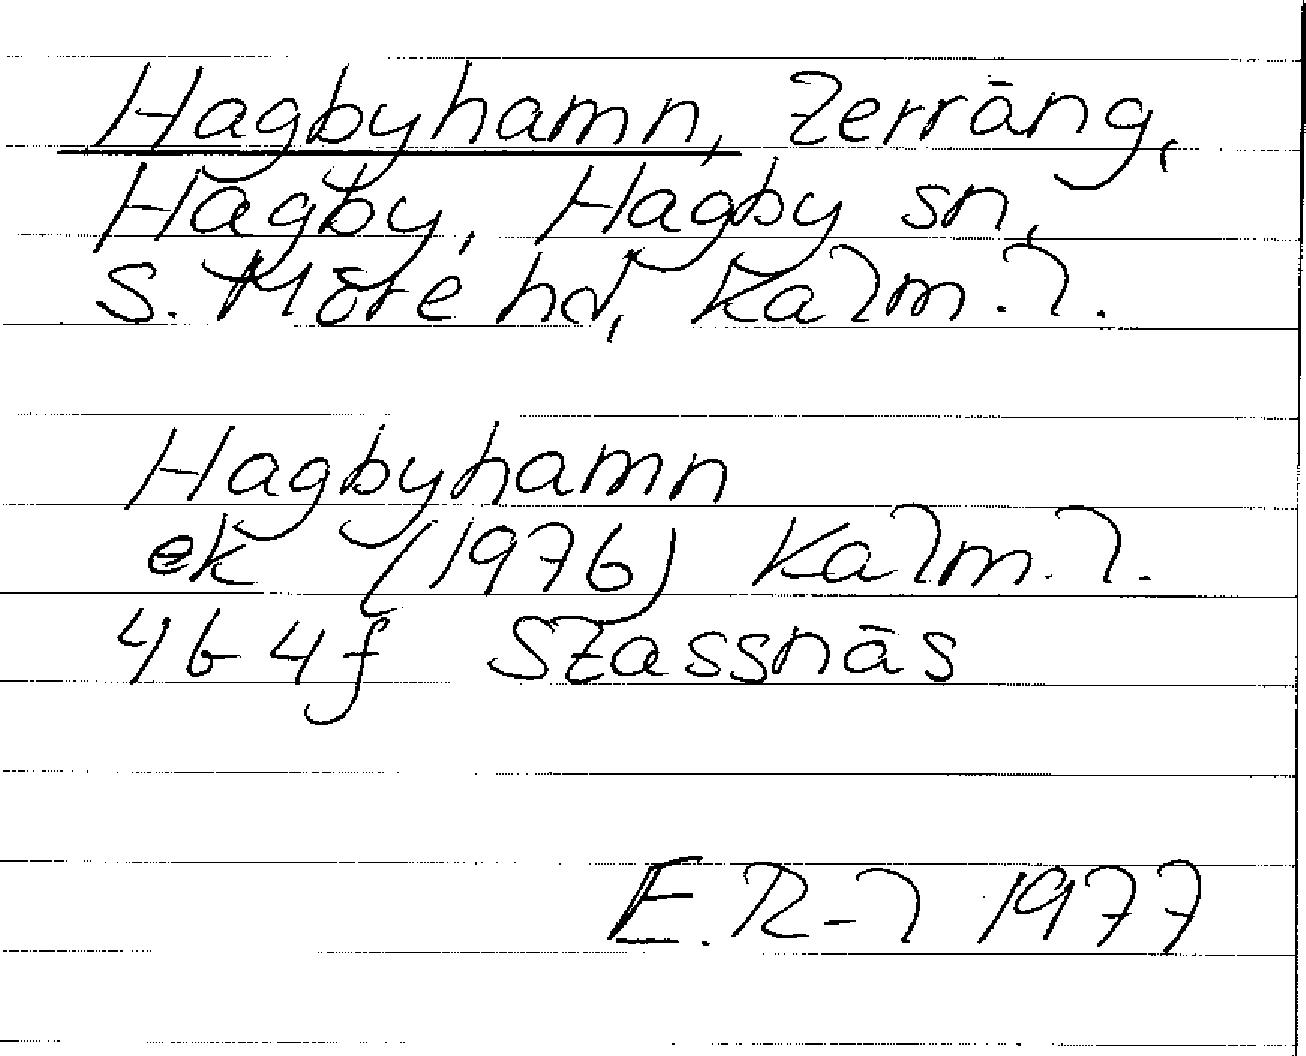 Hagbyhamn, Terräng,
Hagby, Hagby sn,
S. Möre hd, Kalm. l.
Hagbyhamn
ek (1976) Kalm. l.
4b 4f Stassnäs
E.R-l 1977